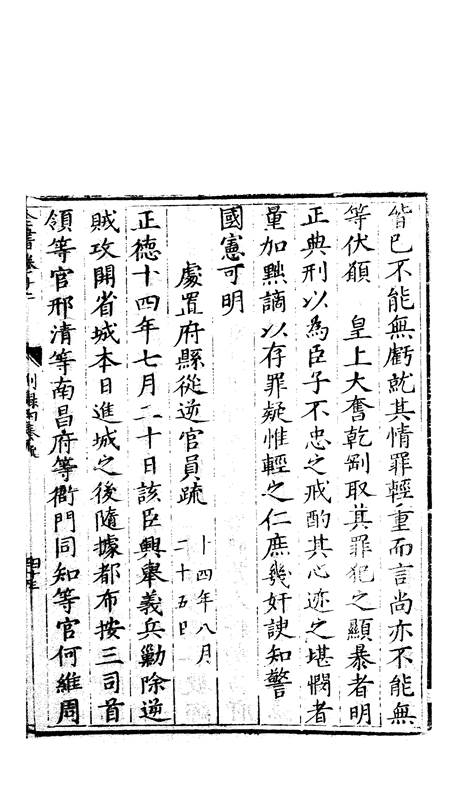 皆已不能無虧就其情罪輕重而言尚亦不能無
等伏願 皇上大奮乾剛取其罪犯之顯暴者明
正典刑以為臣子不忠之戒酌其心迹之堪憫者
量加黜謫以存罪疑惟輕之仁庶幾奸諛知警
國憲可明
處置府縣從逆官員疏 十四年八月
二十五日
正德十四年七月二十日該臣興舉義兵勦除逆
賊攻開省城本日進城之後隨據都布按三司首
領等官邢清等南昌府等衙門同知等官何維周
全書卷十二